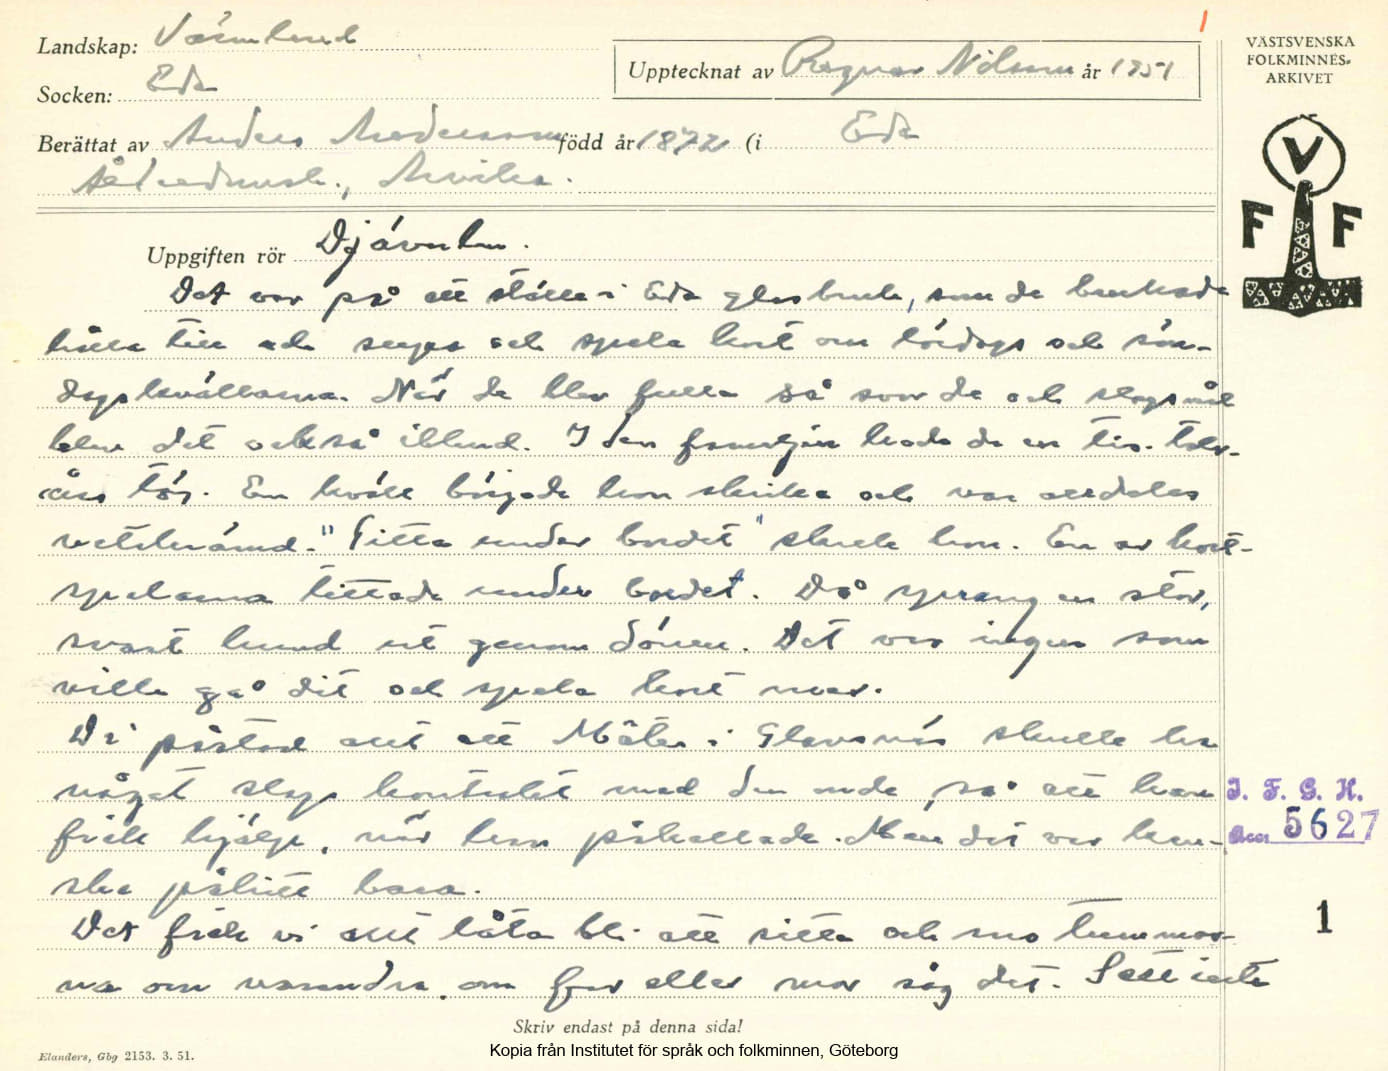 Landskap: Värmland
Socken: Eda
Upptecknat av Ragnar Nilsson år 1951
Berättat av Anders Andersson född år 1872 (i Eda
Ålderdomsh., Arvika.
1
VÄSTSVENSKA
FOLKMINNES-
ARKIVET
V
F F
Uppgiften rör Djävulen.
Det var på ett ställe i Eda glasbruk, som de brukade
hålla till och supa och spela kort om lördags och sön-
dagskvällarna. När de blev fulla så svor de och slagsmål
blev det också ibland. I den familjen hade de en tio-tolv-
års tös. En kväll började hon skrika och var alldeles
vettskrämd. "Titta under bordet" skrek hon. En av kort-
spelarna tittade under bordet. Då sprang en stor,
svart hund ut genom dörren. Det var ingen som
ville gå dit och spela kort mer.
Di påstod att att Mäter i Glavsnäs skulle ha
något slags kontrakt med den onde, så att han
fick hjälp, när han påkallade. Men det var kan-
ske påhitt bara.
Det fick vi att låta bli att sitta och sno tummar-
na om varandra, om far eller mor såg det. Satt inte
I. F. G. H.
Acc. 5627
1
Skriv endast på denna sida!
Elanders, Gbg 2153. 3. 51.
Kopia från Institutet för språk och folkminnen, Göteborg